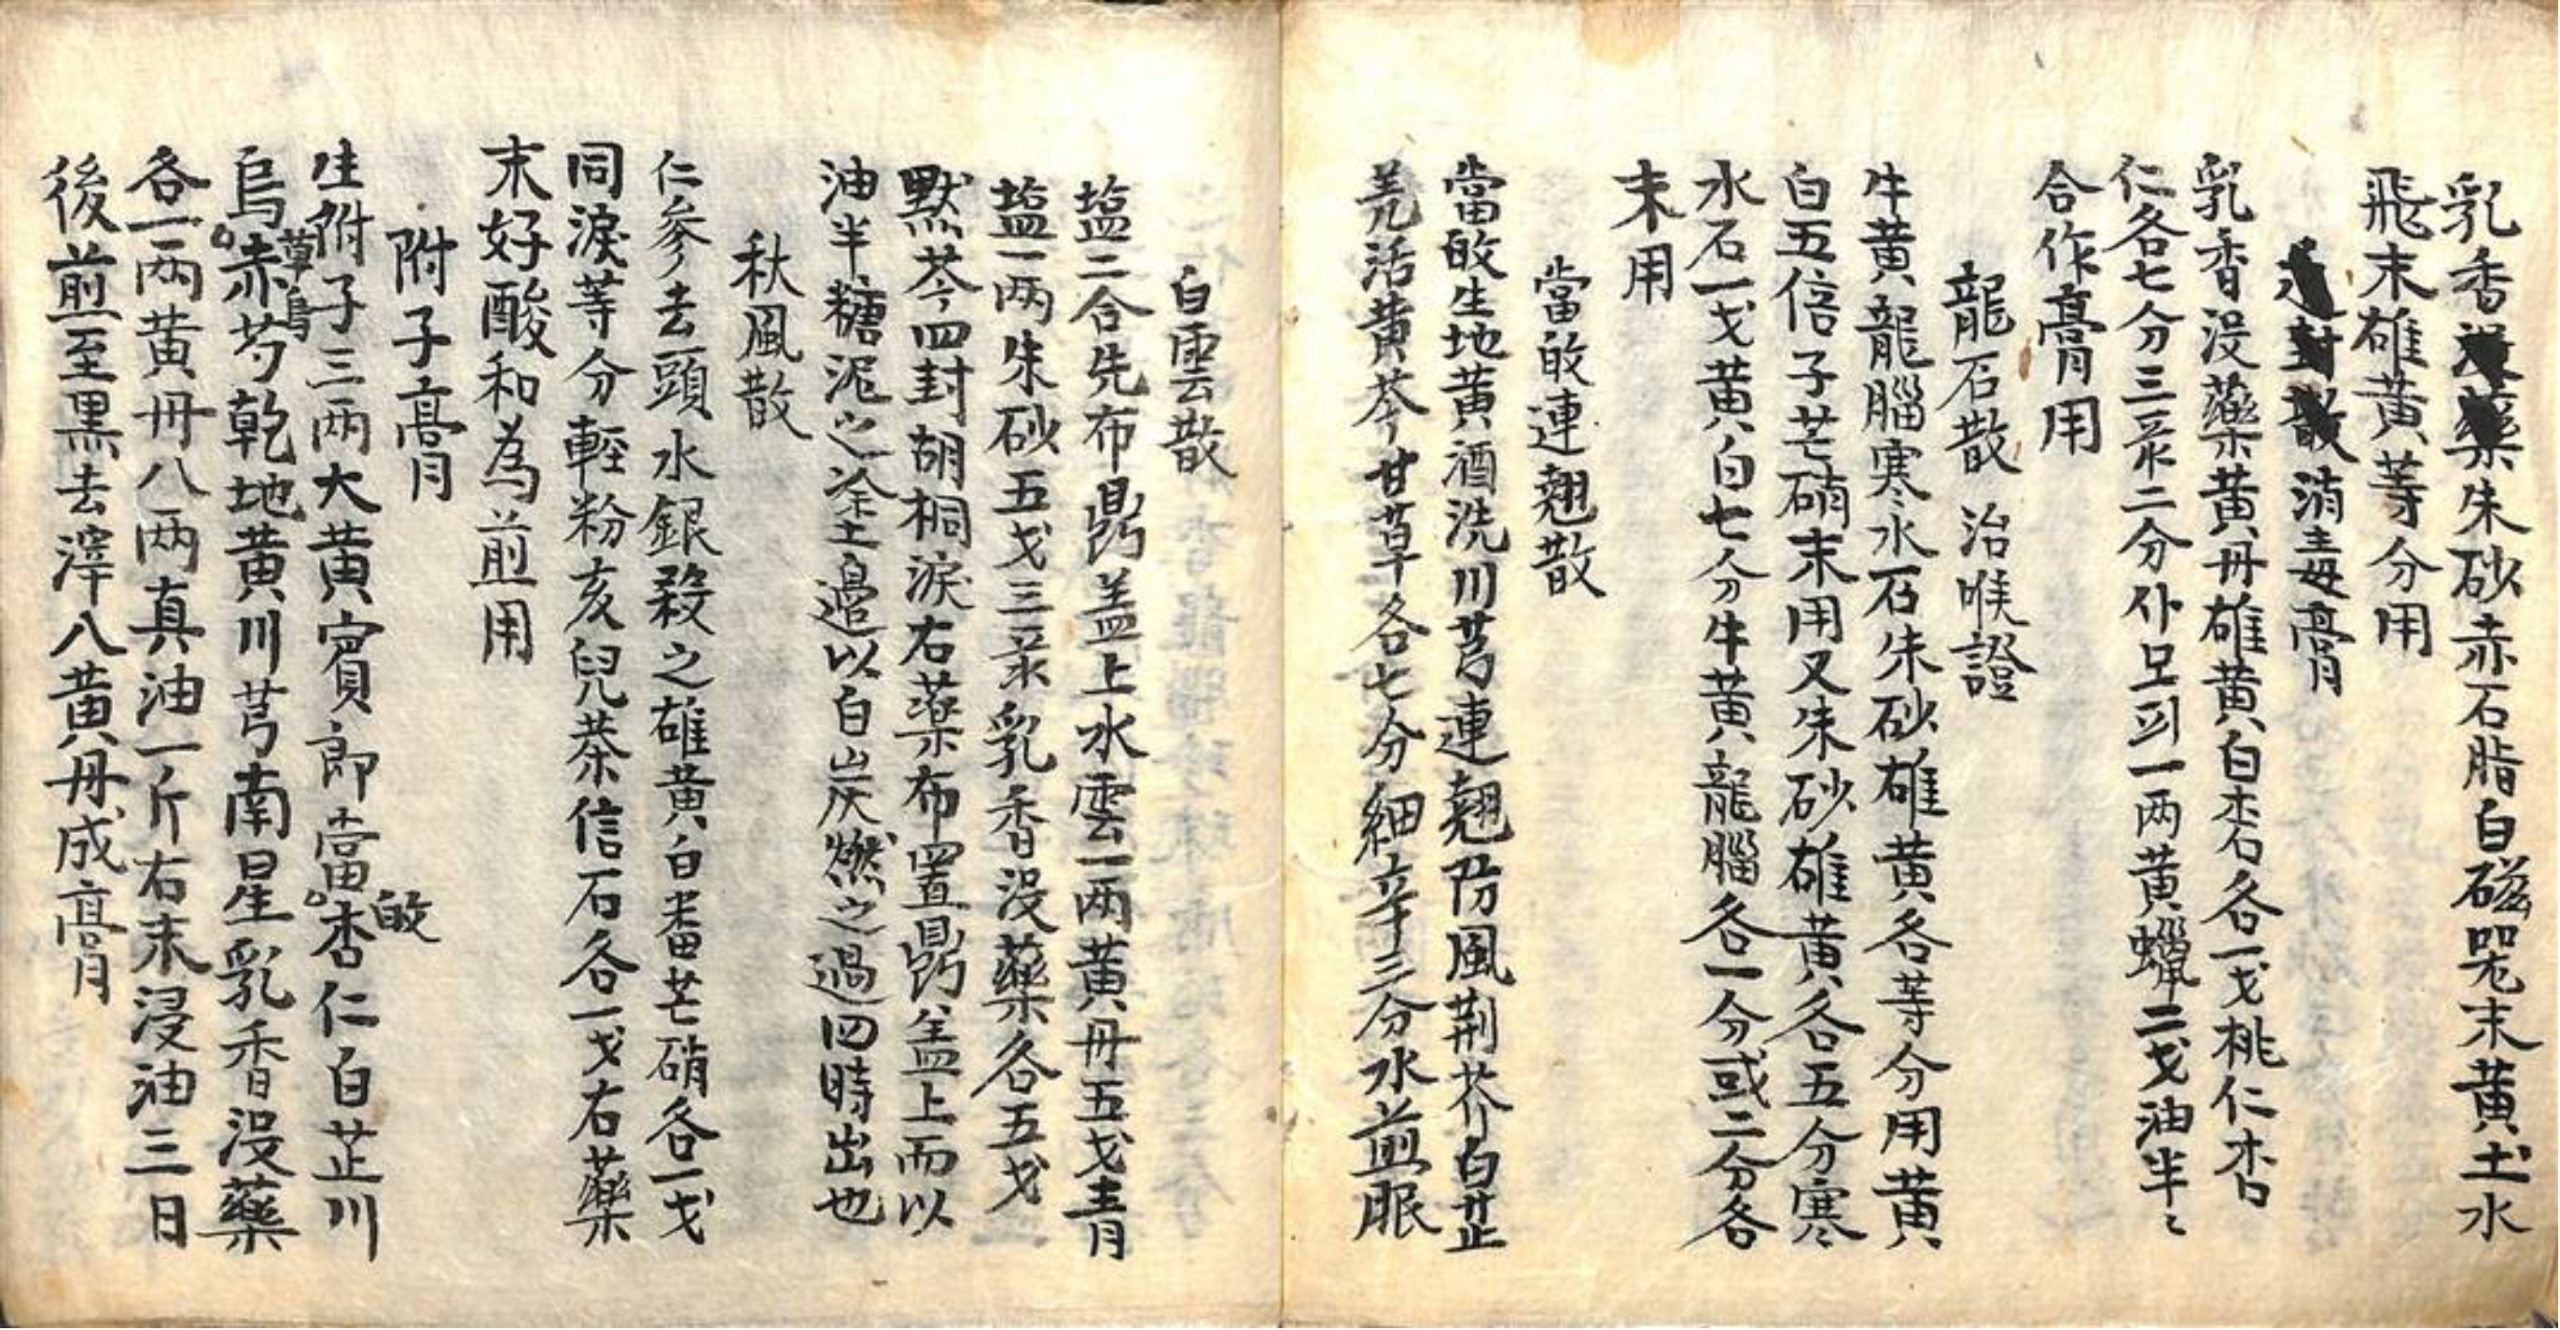 乳香沒藥朱砂赤石脂白磁器末黃土水
飛末雄黃等分用
封散消毒膏
乳香沒藥黃丹雄黃白杏各一戈桃仁杏
仁各七分三釆二分一两黃蠟二戈油半〻
合作膏用
龍石散 治喉證
牛黃龍腦寒水石朱砂雄黃各等分用黃
白五倍子芒硝末用又朱砂雄黃各五分寒
水石一戈黃白七分牛黃龍腦各一分或二分各
末用
當𢻃連翹散
當𢻃生地黃酒洗川芎連翹防風荆芥白芷
羌活黃芩甘草各七分細辛三分水煎服
白雲散
塩二合先布鼎盖上水雲一两黃丹五戈青
塩一两朱砂五戈三釆乳香没藥各五戈
默芩四封胡桐淚右藥布置鼎盖上而以
油半糖泥之塗土邉以白炭燃之過四時出也
秋風散
仁參去頭水銀殺之雄黃白畨芒硝各一戈
同淚等分輕粉亥兒茶信石各一戈右藥
末好酸和為煎用
附子膏
生附子三两大黃賓郎當𢻃杏仁白芷川
烏草烏赤芍乾地黃川芎南星乳香没藥
各一两黃丹八两真油一斤右末浸油三日
後煎至黒去滓八黃丹成膏